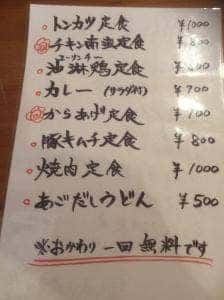 トンカツ定食 ¥1000
チキン南蛮定食 ¥800
ユーリンチー
油淋鶏定食 ¥
カレー (サラダ付) ¥700
からあげ定食 ¥
豚キムチ定食 ¥800
焼肉定食 ¥1000
あごだしうどん ¥500
※おかわり一回無料です